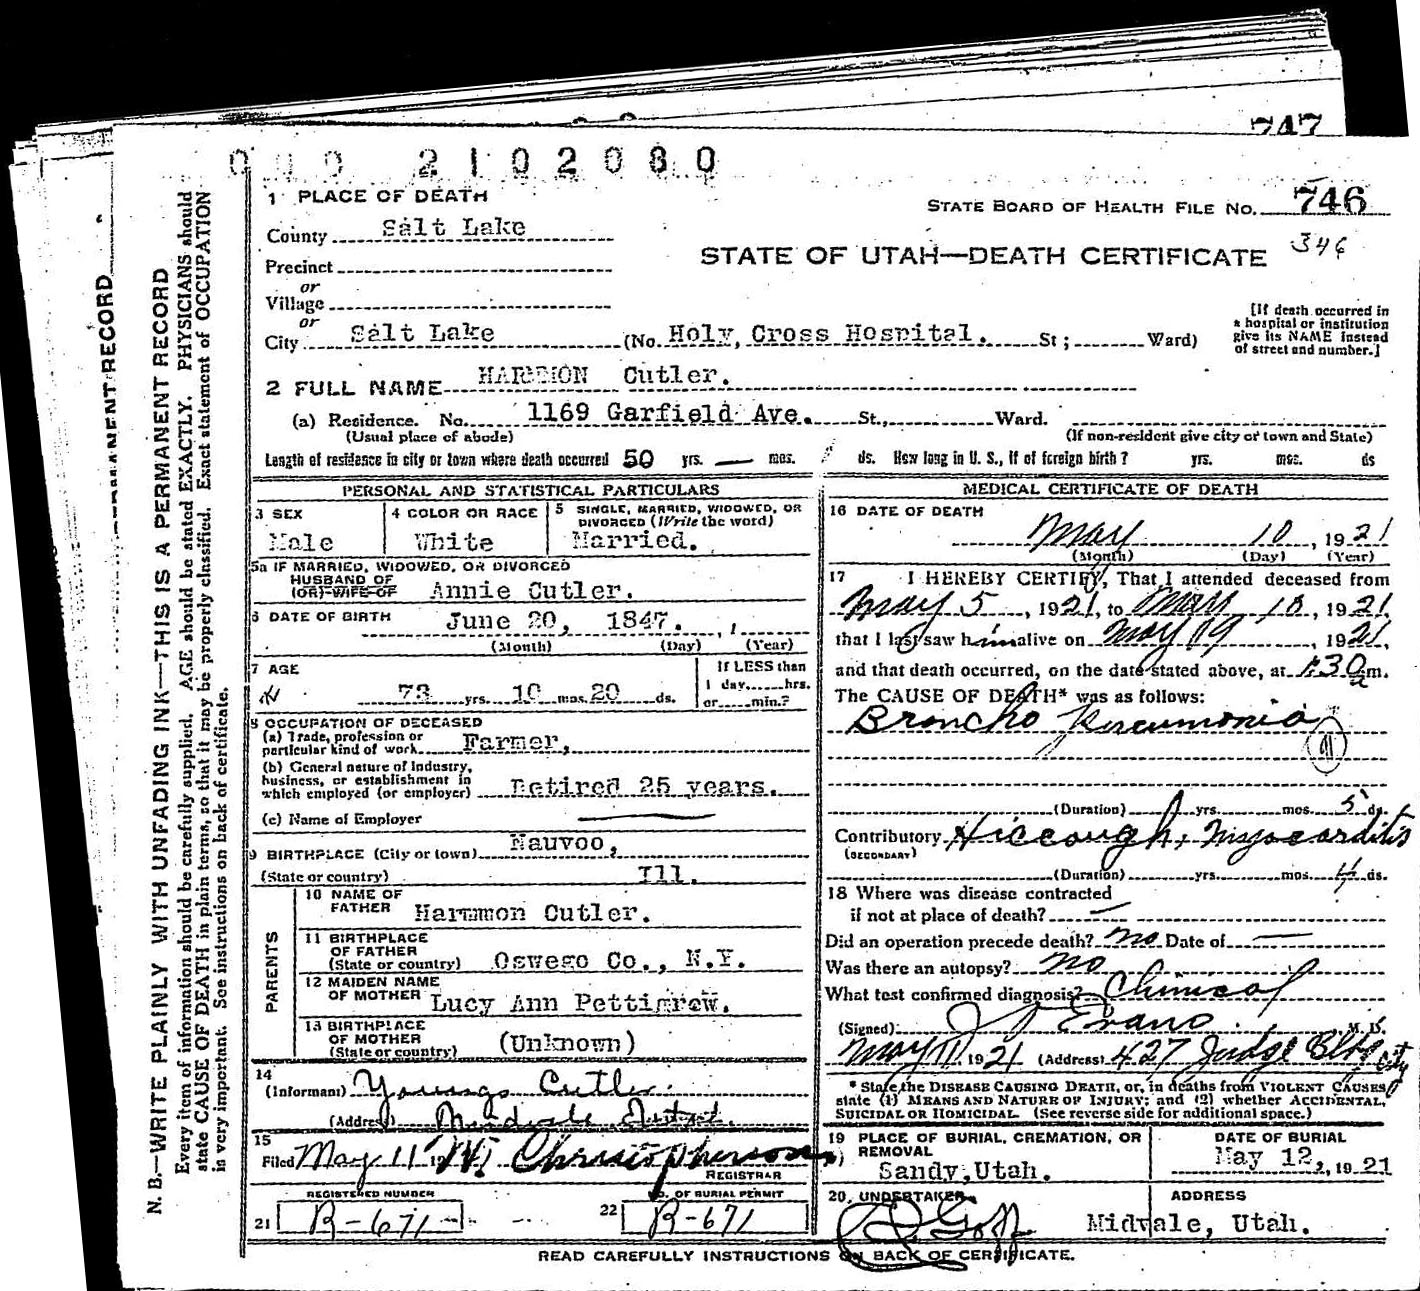 747
0 0 0 2 1 0 2 0 8 0
1 PLACE OF DEATH
STATE BOARD OF HEALTH FILE NO. 746
346
County Salt Lake
STATE OF UTAH—DEATH CERTIFICATE
Precinct
or
Village
or
City Salt Lake (No. Holy, Cross Hospital. St; Ward)
[If death occurred in
a hospital or institution
give its NAME instead
of street and number.]
2 FULL NAME HARMMON Cutler.
(a) Residence. No. 1169 Garfield Ave. St., Ward.
(Usual place of abode) (If non-resident give city or town and State)
Length of residence in city or town where death occurred 50 yrs. — mos. ds. How long in U. S., if of foreign birth? yrs. mos. ds
PERSONAL AND STATISTICAL PARTICULARS
3 SEX
Male
4 COLOR OR RACE
White
5 SINGLE, MARRIED, WIDOWED, OR
DIVORCED (Write the word)
Married.
5a IF MARRIED, WIDOWED, OR DIVORCED
HUSBAND OF
(OR) WIFE OF Annie Cutler.
6 DATE OF BIRTH June 20, 1847.
(Month) (Day) (Year)
7 AGE
73 yrs. 10 mos. 20 ds.
If LESS than
1 day......hrs.
or......min.?
8 OCCUPATION OF DECEASED
(a) Trade, profession or
particular kind of work Farmer,
(b) General nature of Industry,
business, or establishment in
which employed (or employer) Retired 25 years.
(c) Name of Employer
9 BIRTHPLACE (City or town) Nauvoo,
(State or country) Ill.
PARENTS
10 NAME OF
FATHER Harmmon Cutler.
11 BIRTHPLACE
OF FATHER
(State or country) Oswego Co., N.Y.
12 MAIDEN NAME
OF MOTHER Lucy Ann Pettigrew.
13 BIRTHPLACE
OF MOTHER
(State or country) (Unknown)
14
(Informant) Youngs Cutler
(Address) Midvale
15
Filed May 11 19 Christopherson
REGISTRAR
REGISTERED NUMBER
21 R-671
NO. OF BURIAL PERMIT
22 R-671
MEDICAL CERTIFICATE OF DEATH
16 DATE OF DEATH
May 10, 1921
(Month) (Day) (Year)
17 I HEREBY CERTIFY, That I attended deceased from
May 5, 1921, to May 10, 1921
that I last saw him alive on May 09, 1921,
and that death occurred, on the date stated above, at 1:30 a m.
The CAUSE OF DEATH* was as follows:
Broncho Pneumonia
(Duration) yrs. mos. 5 ds.
Contributory Hiccough, Myocarditis
(SECONDARY)
(Duration) yrs. mos. 4 ds.
18 Where was disease contracted
if not at place of death? —
Did an operation precede death? no Date of —
Was there an autopsy? no
What test confirmed diagnosis? Clinical
(Signed) Evans. M. D.
May 11 1921 (Address) 427 Judge Bldg City
* State the DISEASE CAUSING DEATH, or, in deaths from VIOLENT CAUSES,
state (1) MEANS AND NATURE OF INJURY; and (2) whether ACCIDENTAL,
SUICIDAL OR HOMICIDAL. (See reverse side for additional space.)
19 PLACE OF BURIAL, CREMATION, OR
REMOVAL
Sandy, Utah.
DATE OF BURIAL
May 12, 1921
20 UNDERTAKER
Goff
ADDRESS
Midvale, Utah.
READ CAREFULLY INSTRUCTIONS ON BACK OF CERTIFICATE.
N. B.—WRITE PLAINLY WITH UNFADING INK—THIS IS A PERMANENT RECORD
Every item of information should be carefully supplied. AGE should be stated EXACTLY. PHYSICIANS should
state CAUSE OF DEATH in plain terms, so that it may be properly classified. Exact statement of OCCUPATION
is very important. See instructions on back of certificate.
PERMANENT RECORD